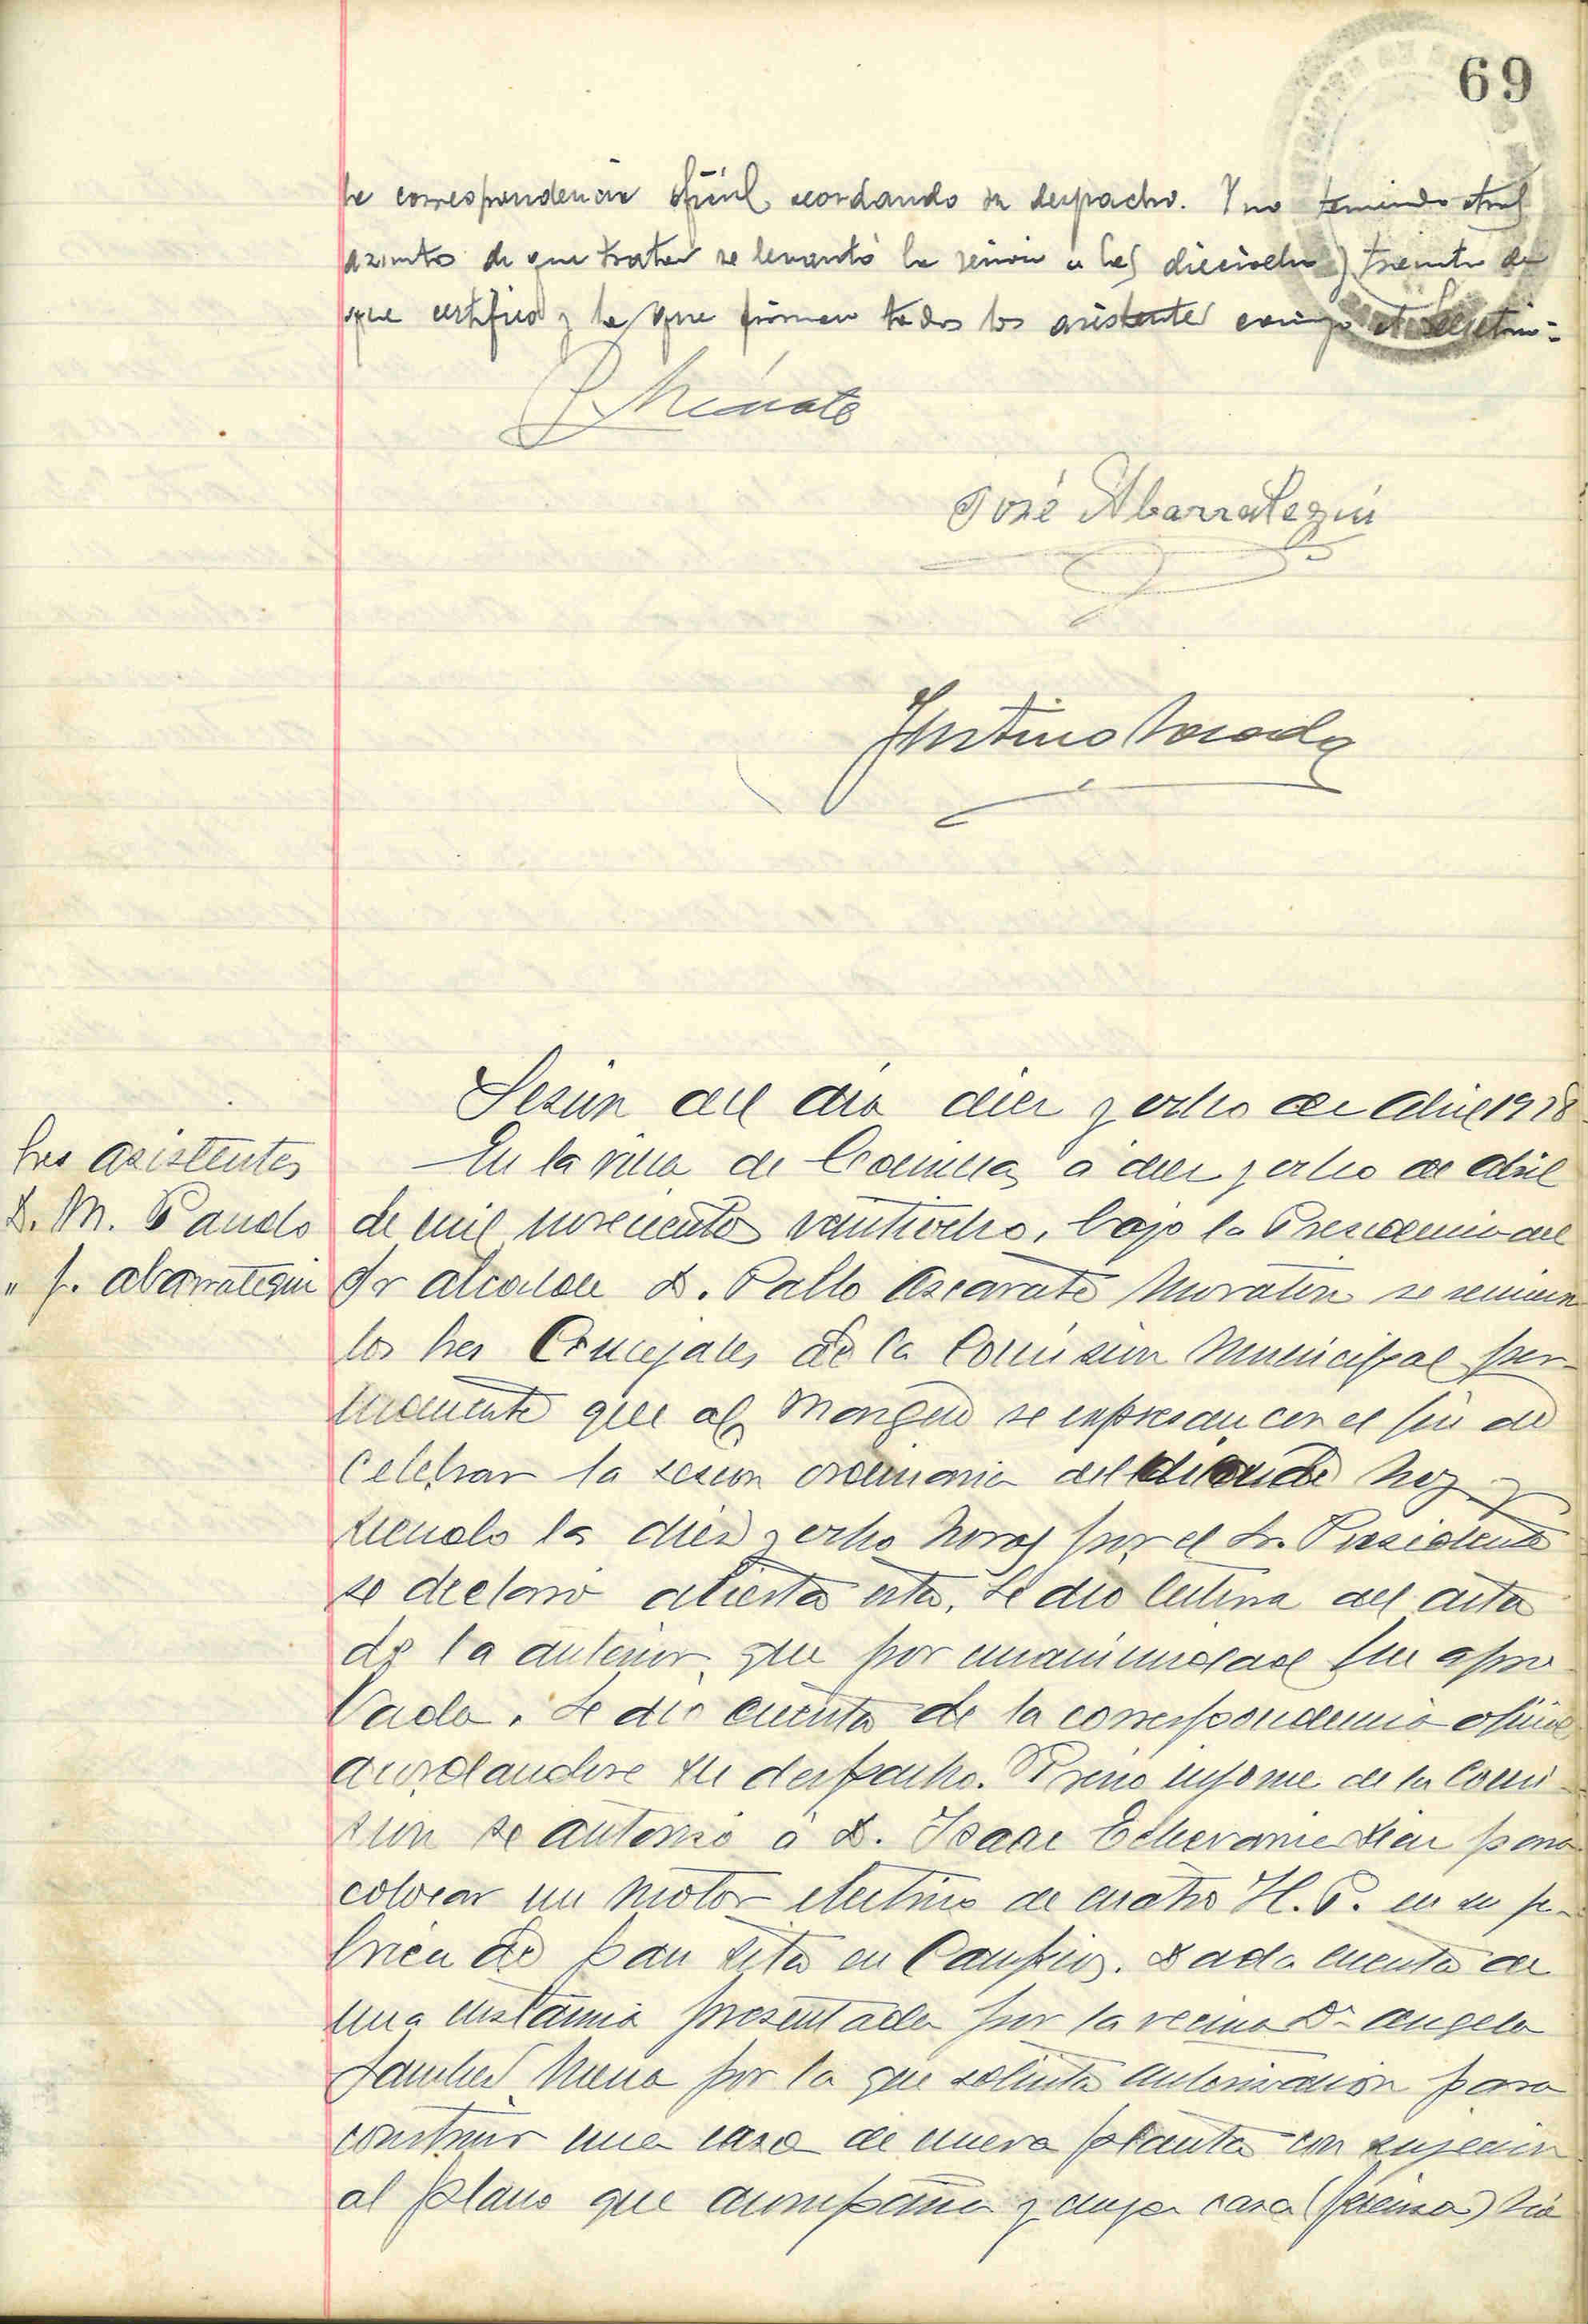 69
la correspondencia oficial acordando su despacho. Y no teniendo otros
asuntos de que tratar se levantó la sesion a las dieciocho y treinta de
que certifico y la que firman todos los asistentes conmigo el Secretario=
José Abarrategui
Sesion del dia diez y ocho de Abril 1928
En la villa de Comillas a diez y ocho de Abril
de mil novecientos veintiocho, bajo la Presidencia del
Sr Alcalde D. Pablo Azcarate Moratin se reunieron
los Sres Concejales de la Comision Municipal per-
manente que al margen se expresan con el fin de
celebrar la sesion ordinaria del dia de hoy y
siendo las diez y ocho horas por el Sr. Presidente
se declaró abierta esta. Se dio lectura del acta
de la anterior, que por unanimidad fue apro
vada. Se dió cuenta de la correspondencia oficial
acordandose su despacho. Previo informe de la Comi-
sion se autorizó a D. Isaac Echevarria Diaz para
colocar un motor electrico de cuatro H.P. en su fa-
brica de pan sita en Campios. Dada cuenta de
una instancia presentada por la vecina Dª Angela
Sanchez Mena por la que solicita autorizacion para
construir una casa de nueva planta con sujecion
al plano que acompaña y cuya casa
Sres Asistentes
D. M. Pando
" J. Abarrategui